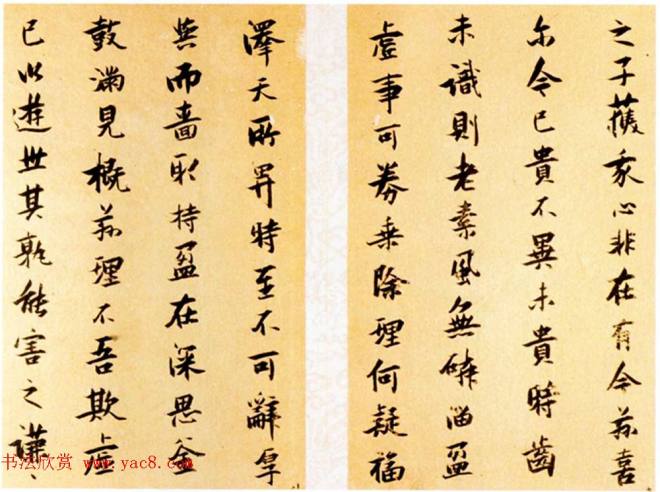 之子獲我心非在有今茲喜
尓今已貴不異未貴時齒
未識則老素風無磷淄盈
虛事可券乗除理何疑福
澤天所畀時至不可辭厚
與而嗇取持盈在深思釜
鼓滿見概茲理不吾欺虛
已以遊世其孰能害之謙
书法欣赏 www.yac8.com